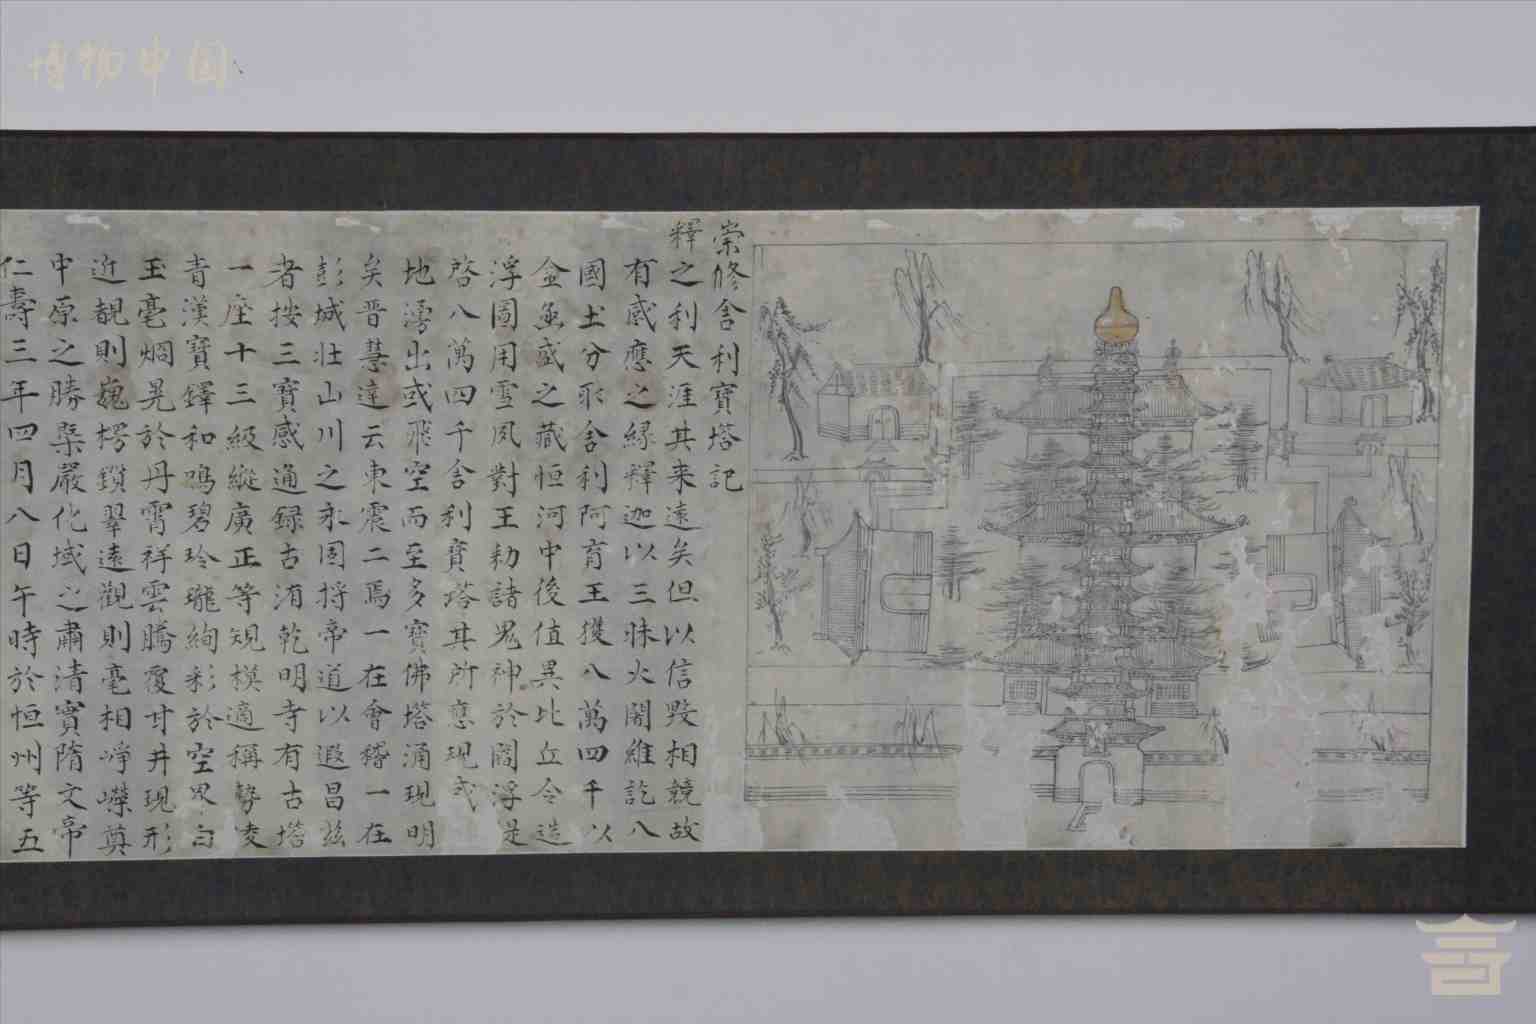 博物中国
崇修舍利寶塔記
釋之利天涯其来遠矣但以信毀相競故
有感應之緣釋迦以三昧火闍維訖八
國土分取舍利阿育王獲八萬四千以
金函盛之藏恒河中後值異比丘令造
浮圖用雪夙對王勑諸鬼神於閻浮是
啓八萬四千舍利寶塔其所應現或
地湧出或飛空而至多寶佛塔涌現明
矣晋慧達云東震二焉一在會稽一在
彭城壯山川之永固捋帝道以遐昌茲
者按三寶感通録古洧乾明寺有古塔
一座十三級縱廣正等規模適稱勢凌
青漢寶鐸和鳴碧玲瓏絢彩於空界白
玉毫烱晃於丹霄祥雲騰覆甘井現形
近覩則巍楞鎖翠遠觀則毫相崢嶸奠
中原之勝槩嚴化域之肅清實隋文帝
仁壽三年四月八日午時於恒州等五